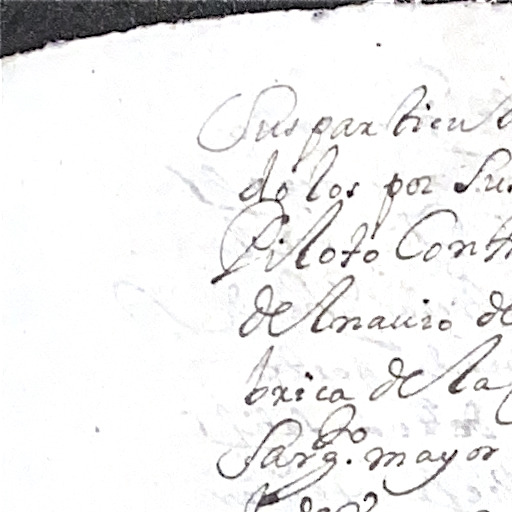 Sus particu
dolos por Sus
Piloto Cont
del navio de
brica de la
Sarg.to mayor